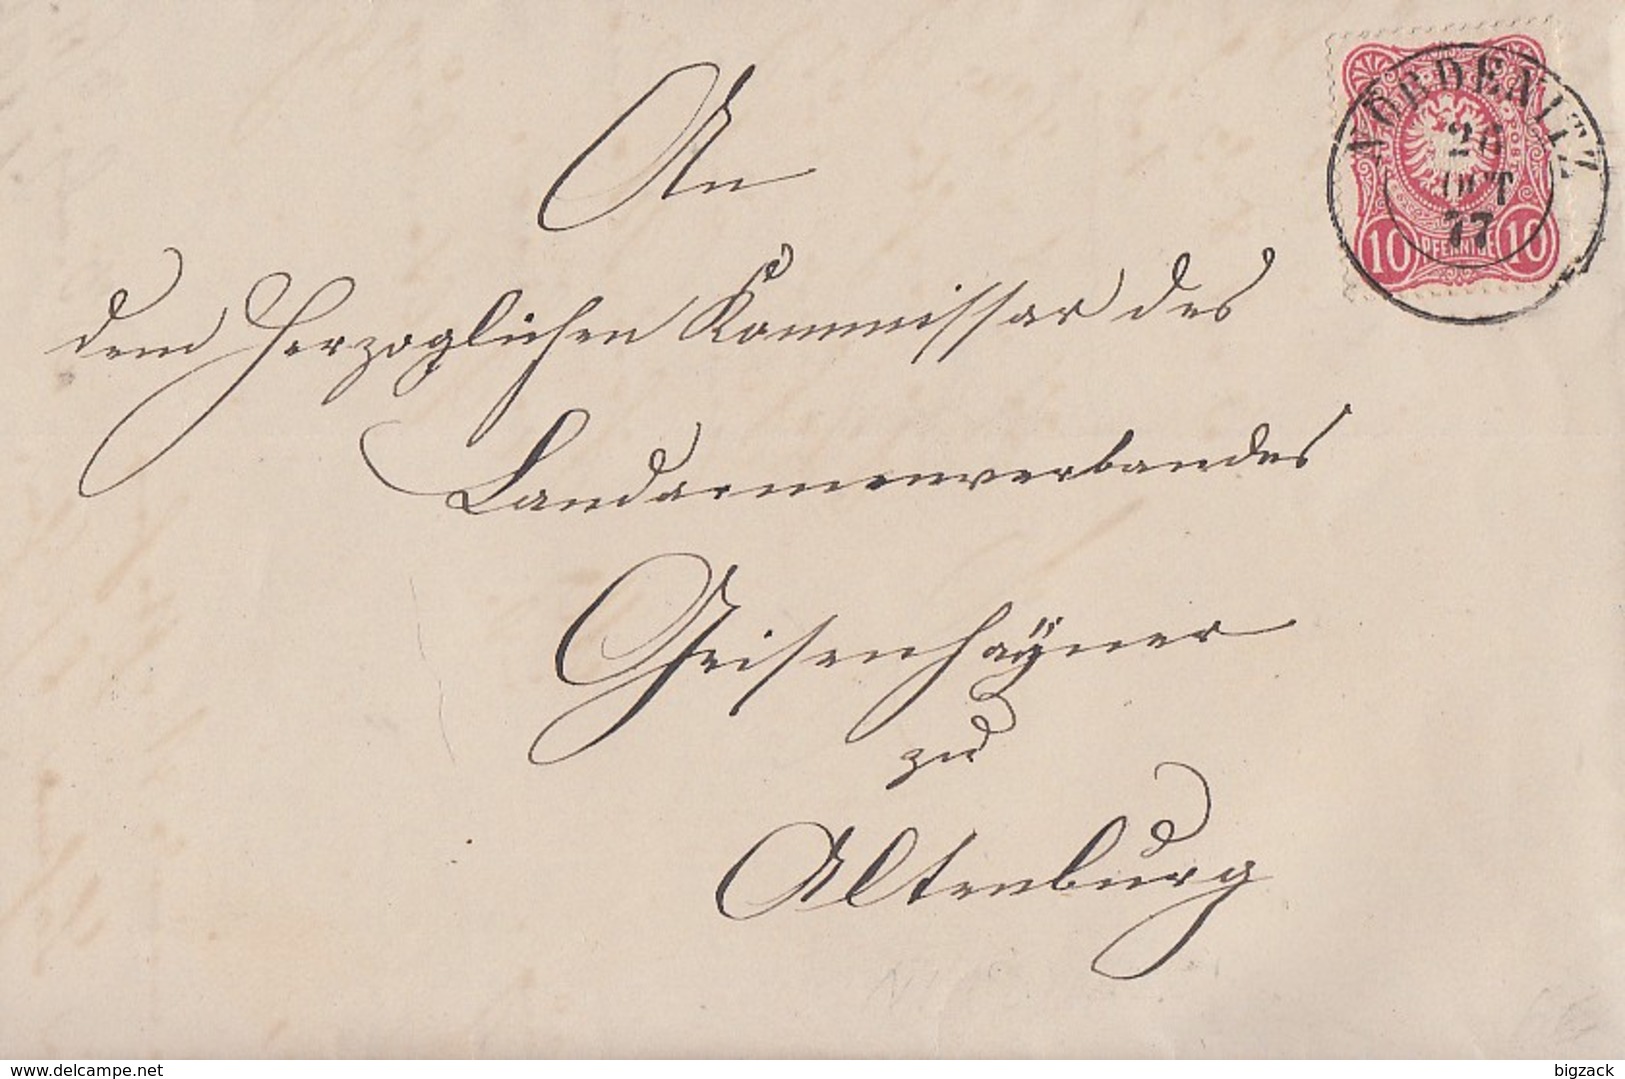 An
dem Herzoglichen Kommissar des
Landarmenverbandes
Geisenhÿner
zu
Altenburg
NÖRDENITZ
26
OCT
77
POST
10 PFENNIGE 10
delcampe.net
bigzack